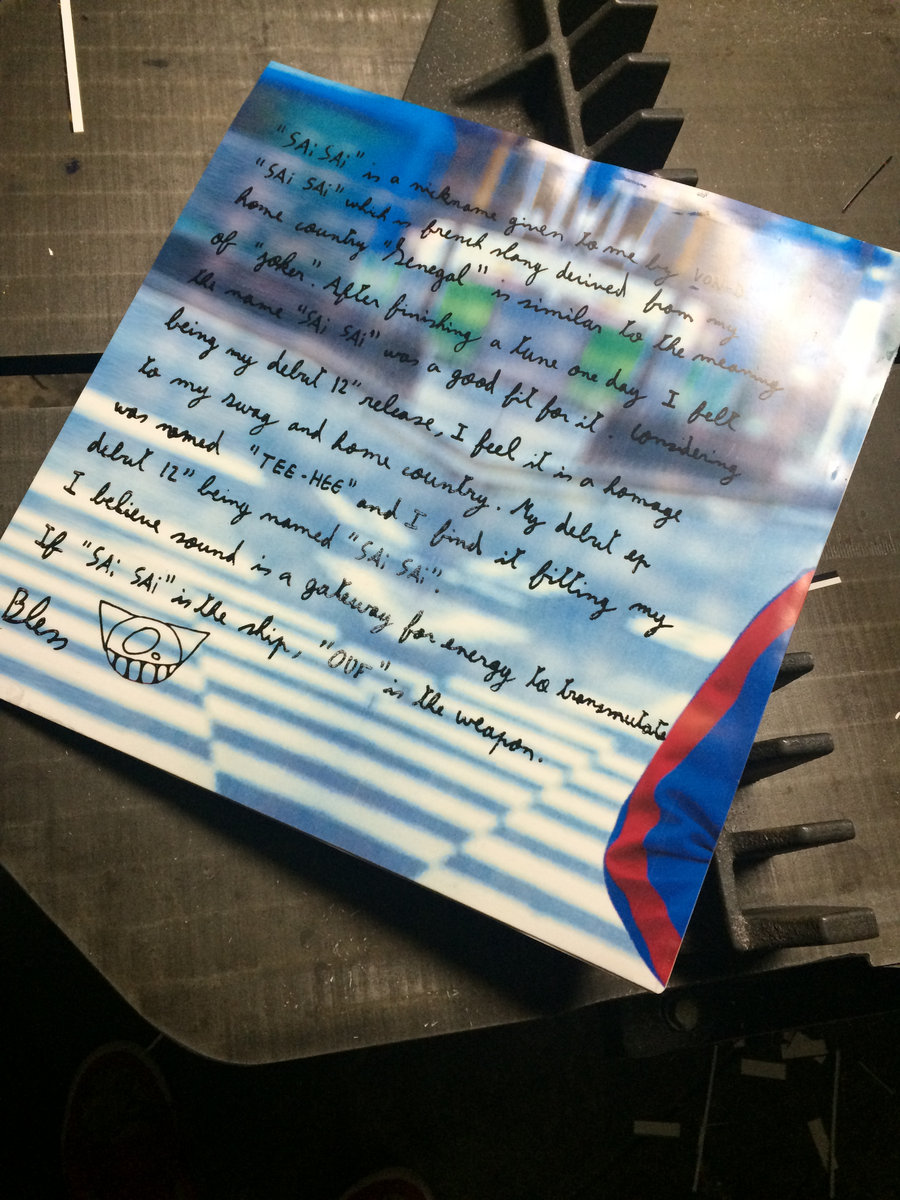 "SAi SAi" is a nickname given to me by
"SAi SAi" which is french slang derived from my
home country "Senegal" is similar to the meaning
of "joker". After finishing a tune one day I felt
the name "SAi SAi" was a good fit for it. Considering
being my debut 12" release, I feel it is a homage
to my swag and home country. My debut ep
was named "TEE-HEE" and I find it fitting my
debut 12" being named "SAi SAi".
I believe sound is a gateway for energy to transmutate
If "SAi SAi" is the ship, "OUF" is the weapon.
Bless